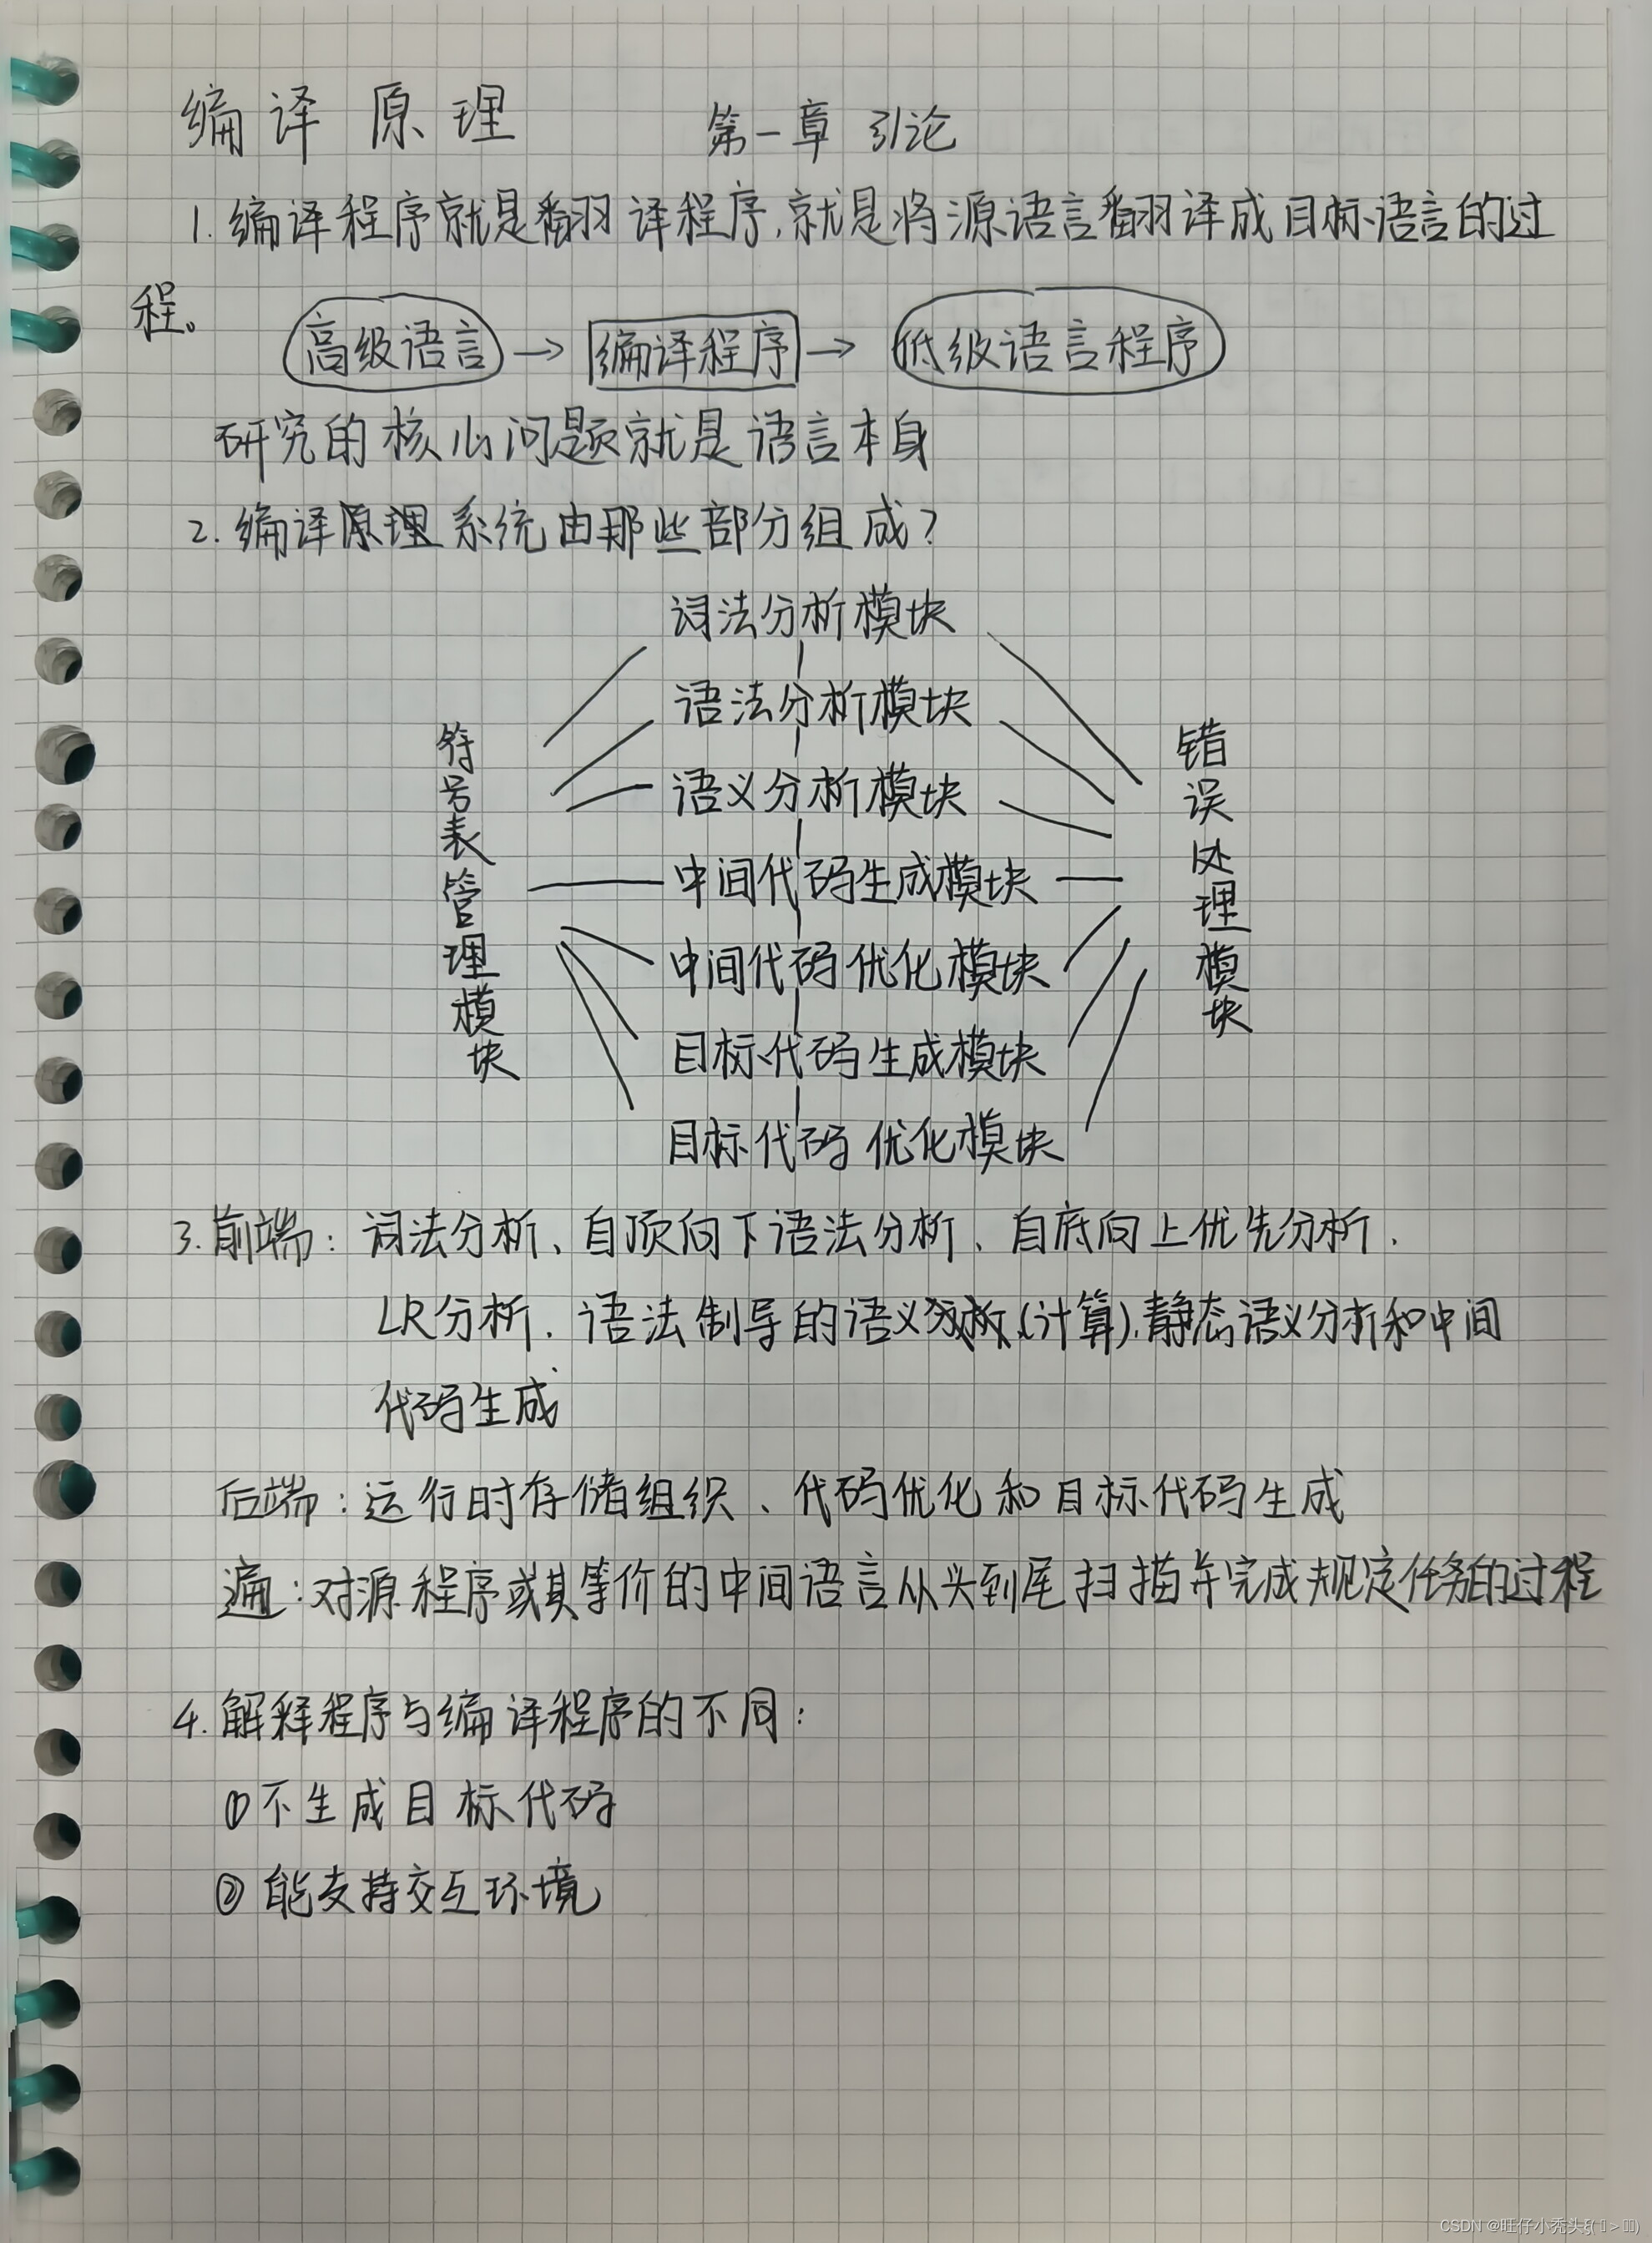 编译原理 第一章 引论
1. 编译程序就是翻译程序,就是将源语言翻译成目标语言的过
程。
高级语言 → 编译程序 → 低级语言程序
研究的核心问题就是语言本身
2. 编译原理系统由那些部分组成?
词法分析模块
语法分析模块
语义分析模块
中间代码生成模块
中间代码优化模块
目标代码生成模块
目标代码优化模块
符号表管理模块
错误处理模块
3. 前端: 词法分析、自顶向下语法分析、自底向上优先分析、
LR分析、语法制导的语义(计算)、静态语义分析和中间
代码生成
后端: 运行时存储组织、代码优化和目标代码生成
遍: 对源程序或其等价的中间语言从头到尾扫描并完成规定任务的过程
4. 解释程序与编译程序的不同:
①不生成目标代码
②能支持交互环境
CSDN @旺仔小秃头